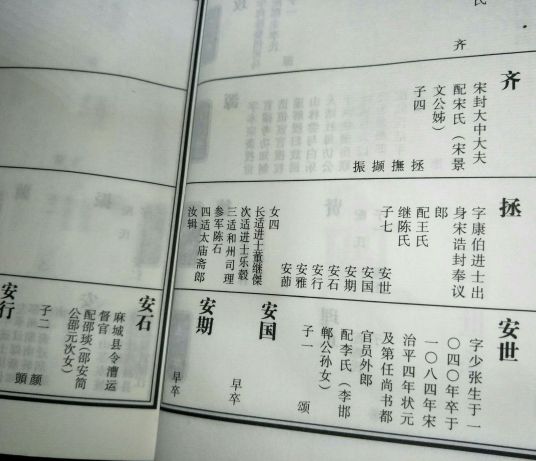 氏
齐
齐
宋封大中大夫
配宋氏（宋景
文公姊）
子四
拯
撫
撷
振
拯
字康伯进士出
身宋诰封奉议
郎
配王氏
继陈氏
子七
安世
安国
安期
安石
安行
安雅
安節
女四
长适进士董继傑
次适进士乐毅
三适和州司理
参军陈石
四适太庙斋郎
汝辑
安世
字少张生于一
〇四〇年卒于
一〇八四年宋
治平四年状元
及第任尚书都
官员外郎
配李氏（李邯
郸公孙女）
子一
颂
安国
早卒
安期
早卒
安石
麻城县令漕运
督官
配邵琰（邵安简
公邵元次女）
子二
颜
頭
安行